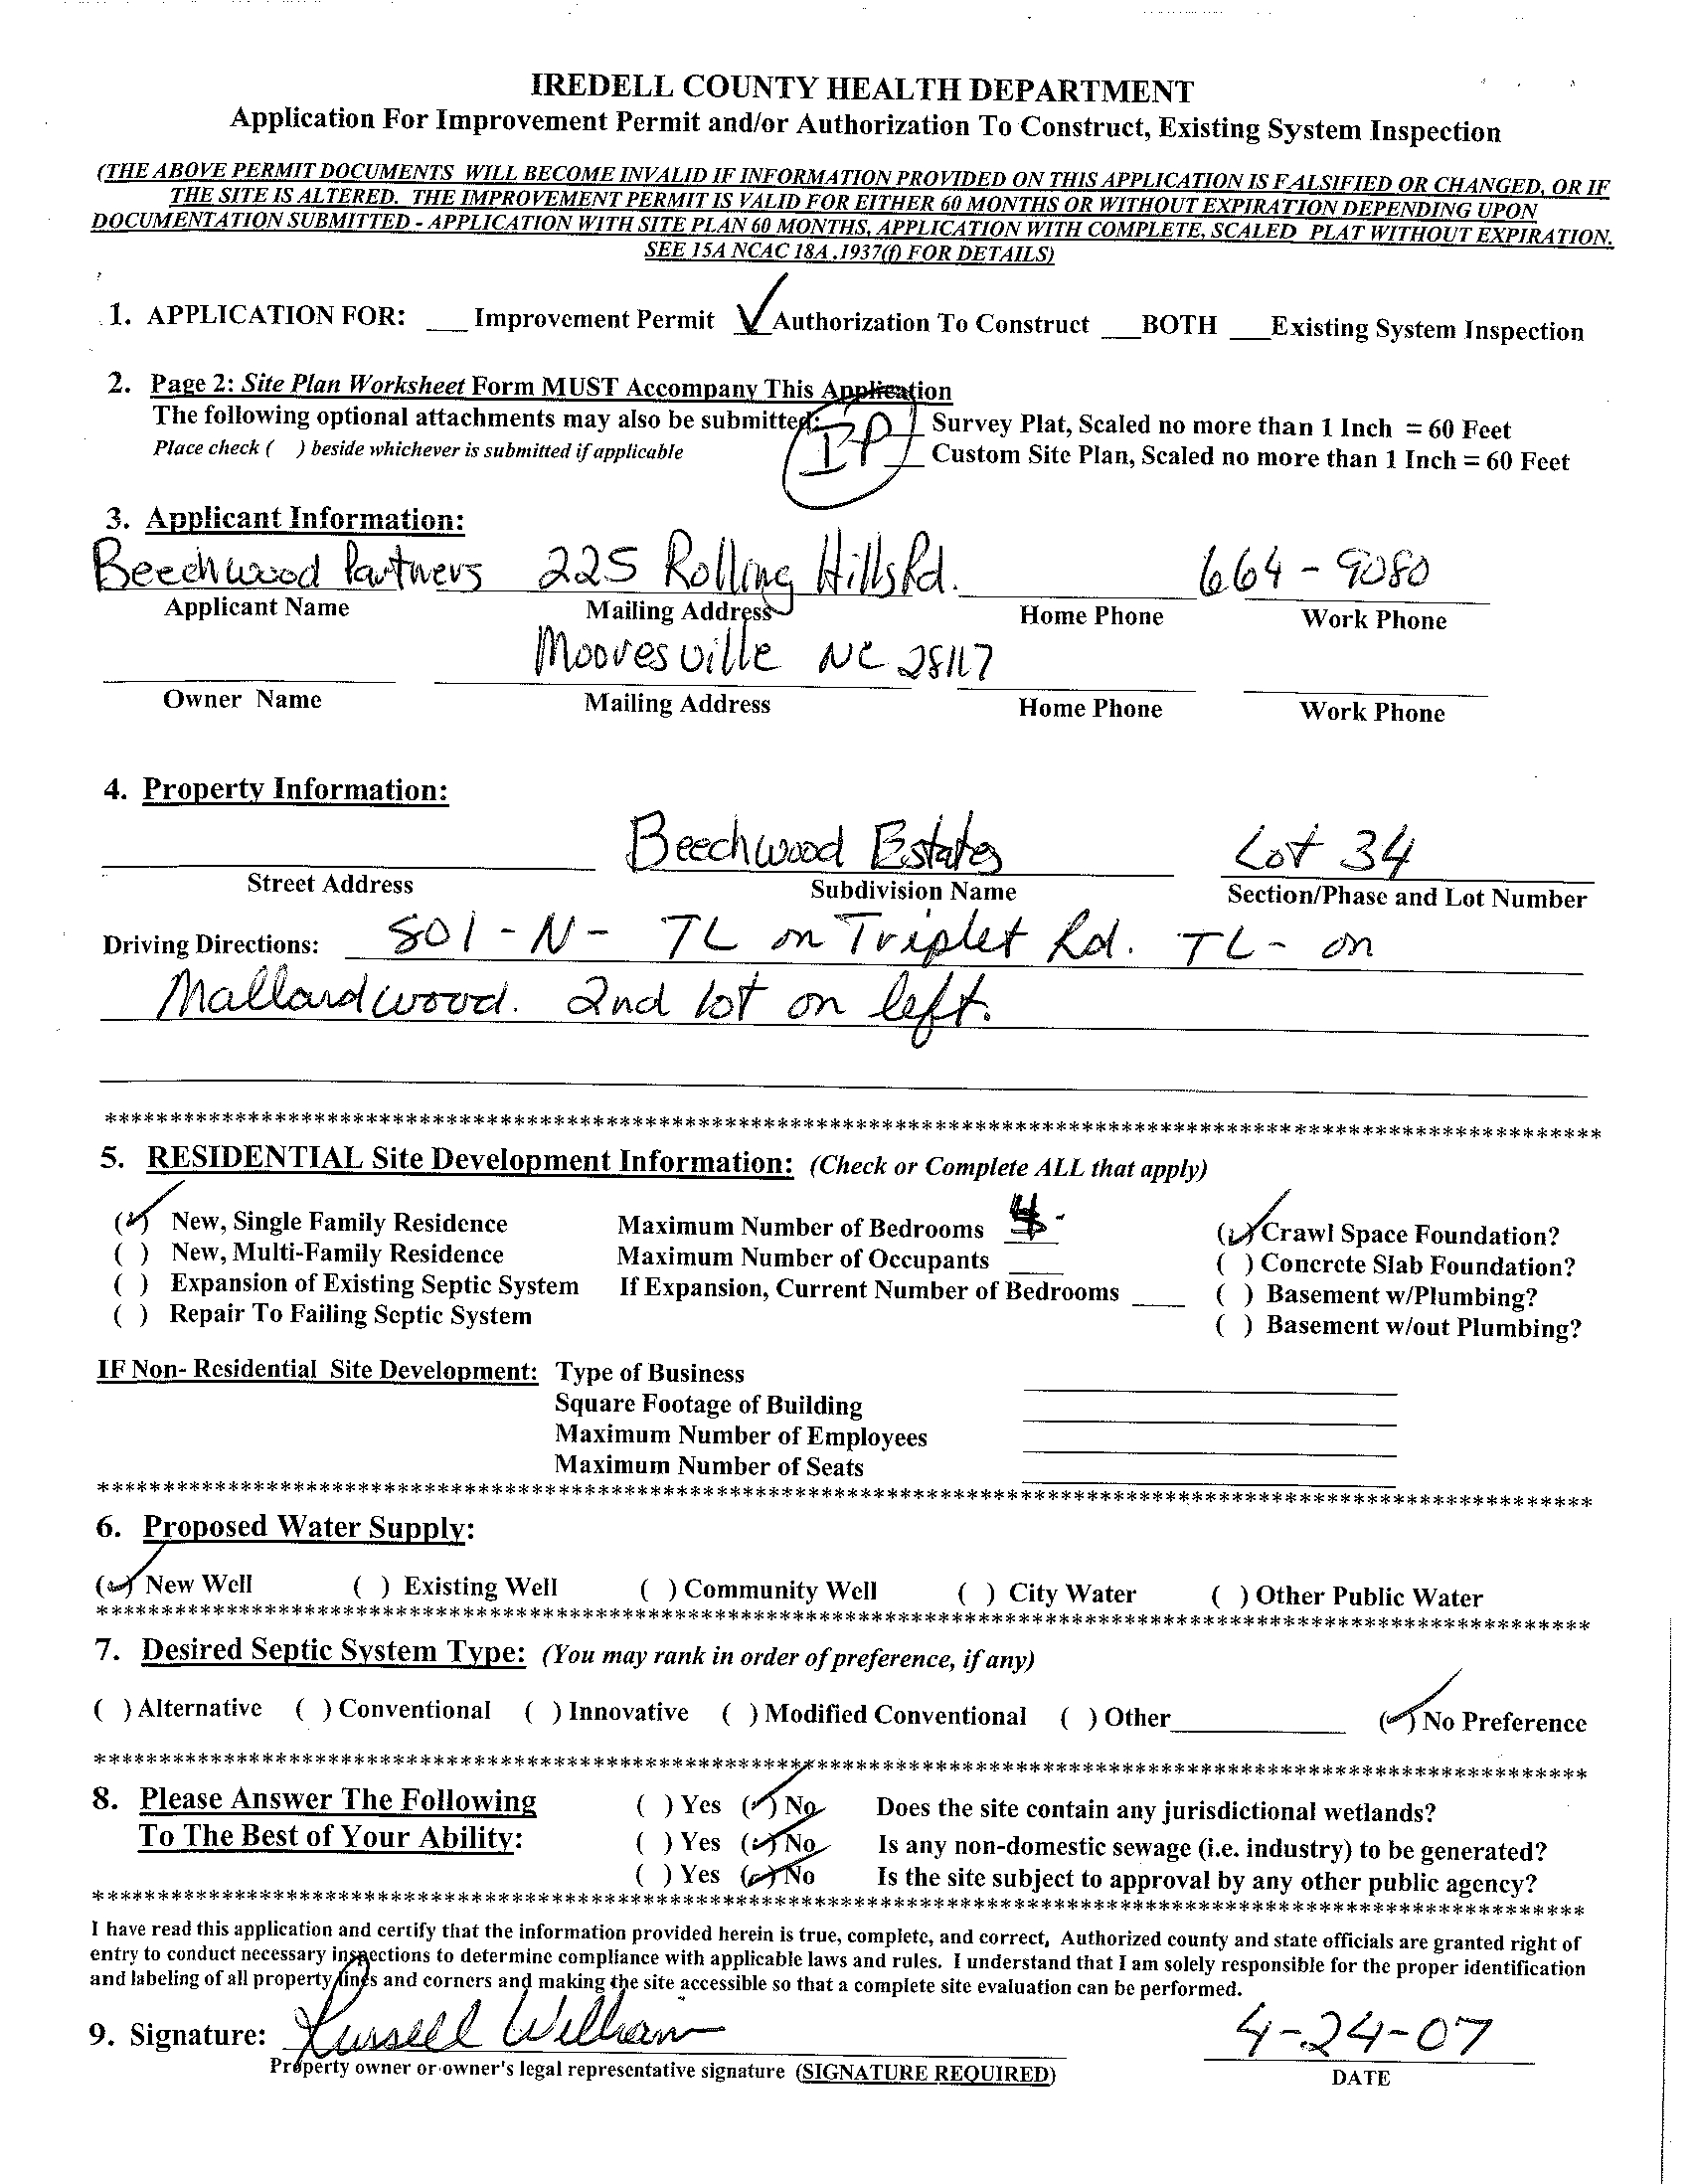 IREDELL COUNTY HEALTH DEPARTMENT
Application For Improvement Permit and/or Authorization To Construct, Existing System Inspection
(THE ABOVE PERMIT DOCUMENTS WILL BECOME INVALID IF INFORMATION PROVIDED ON THIS APPLICATION IS FALSIFIED OR CHANGED, OR IF
THE SITE IS ALTERED. THE IMPROVEMENT PERMIT IS VALID FOR EITHER 60 MONTHS OR WITHOUT EXPIRATION DEPENDING UPON
DOCUMENTATION SUBMITTED - APPLICATION WITH SITE PLAN 60 MONTHS, APPLICATION WITH COMPLETE, SCALED PLAT WITHOUT EXPIRATION.
SEE 15A NCAC 18A .1937(f) FOR DETAILS)
1. APPLICATION FOR: ___ Improvement Permit ✓ Authorization To Construct ___BOTH ___Existing System Inspection
2. Page 2: Site Plan Worksheet Form MUST Accompany This Application
The following optional attachments may also be submitted: IP Survey Plat, Scaled no more than 1 Inch = 60 Feet
Place check ( ) beside whichever is submitted if applicable Custom Site Plan, Scaled no more than 1 Inch = 60 Feet
3. Applicant Information:
Beechwood Partners 225 Rolling Hills Rd. 664-9080
Applicant Name Mailing Address Home Phone Work Phone
Mooresville NC 28117
Owner Name Mailing Address Home Phone Work Phone
4. Property Information:
Beechwood Estates Lot 34
Street Address Subdivision Name Section/Phase and Lot Number
Driving Directions: 801-N- TL on Triplet Rd. TL- on
Mallardwood. 2nd lot on left.
************************************************************
5. RESIDENTIAL Site Development Information: (Check or Complete ALL that apply)
(✓) New, Single Family Residence Maximum Number of Bedrooms 4 (✓) Crawl Space Foundation?
( ) New, Multi-Family Residence Maximum Number of Occupants ____ ( ) Concrete Slab Foundation?
( ) Expansion of Existing Septic System If Expansion, Current Number of Bedrooms ____ ( ) Basement w/Plumbing?
( ) Repair To Failing Septic System ( ) Basement w/out Plumbing?
IF Non- Residential Site Development: Type of Business
Square Footage of Building
Maximum Number of Employees
Maximum Number of Seats
************************************************************
6. Proposed Water Supply:
(✓) New Well ( ) Existing Well ( ) Community Well ( ) City Water ( ) Other Public Water
************************************************************
7. Desired Septic System Type: (You may rank in order of preference, if any)
( ) Alternative ( ) Conventional ( ) Innovative ( ) Modified Conventional ( ) Other____________ (✓) No Preference
************************************************************
8. Please Answer The Following ( ) Yes (✓) No Does the site contain any jurisdictional wetlands?
To The Best of Your Ability: ( ) Yes (✓) No Is any non-domestic sewage (i.e. industry) to be generated?
( ) Yes (✓) No Is the site subject to approval by any other public agency?
************************************************************
I have read this application and certify that the information provided herein is true, complete, and correct, Authorized county and state officials are granted right of
entry to conduct necessary inspections to determine compliance with applicable laws and rules. I understand that I am solely responsible for the proper identification
and labeling of all property lines and corners and making the site accessible so that a complete site evaluation can be performed.
9. Signature: Russell William 4-24-07
Property owner or owner's legal representative signature (SIGNATURE REQUIRED) DATE